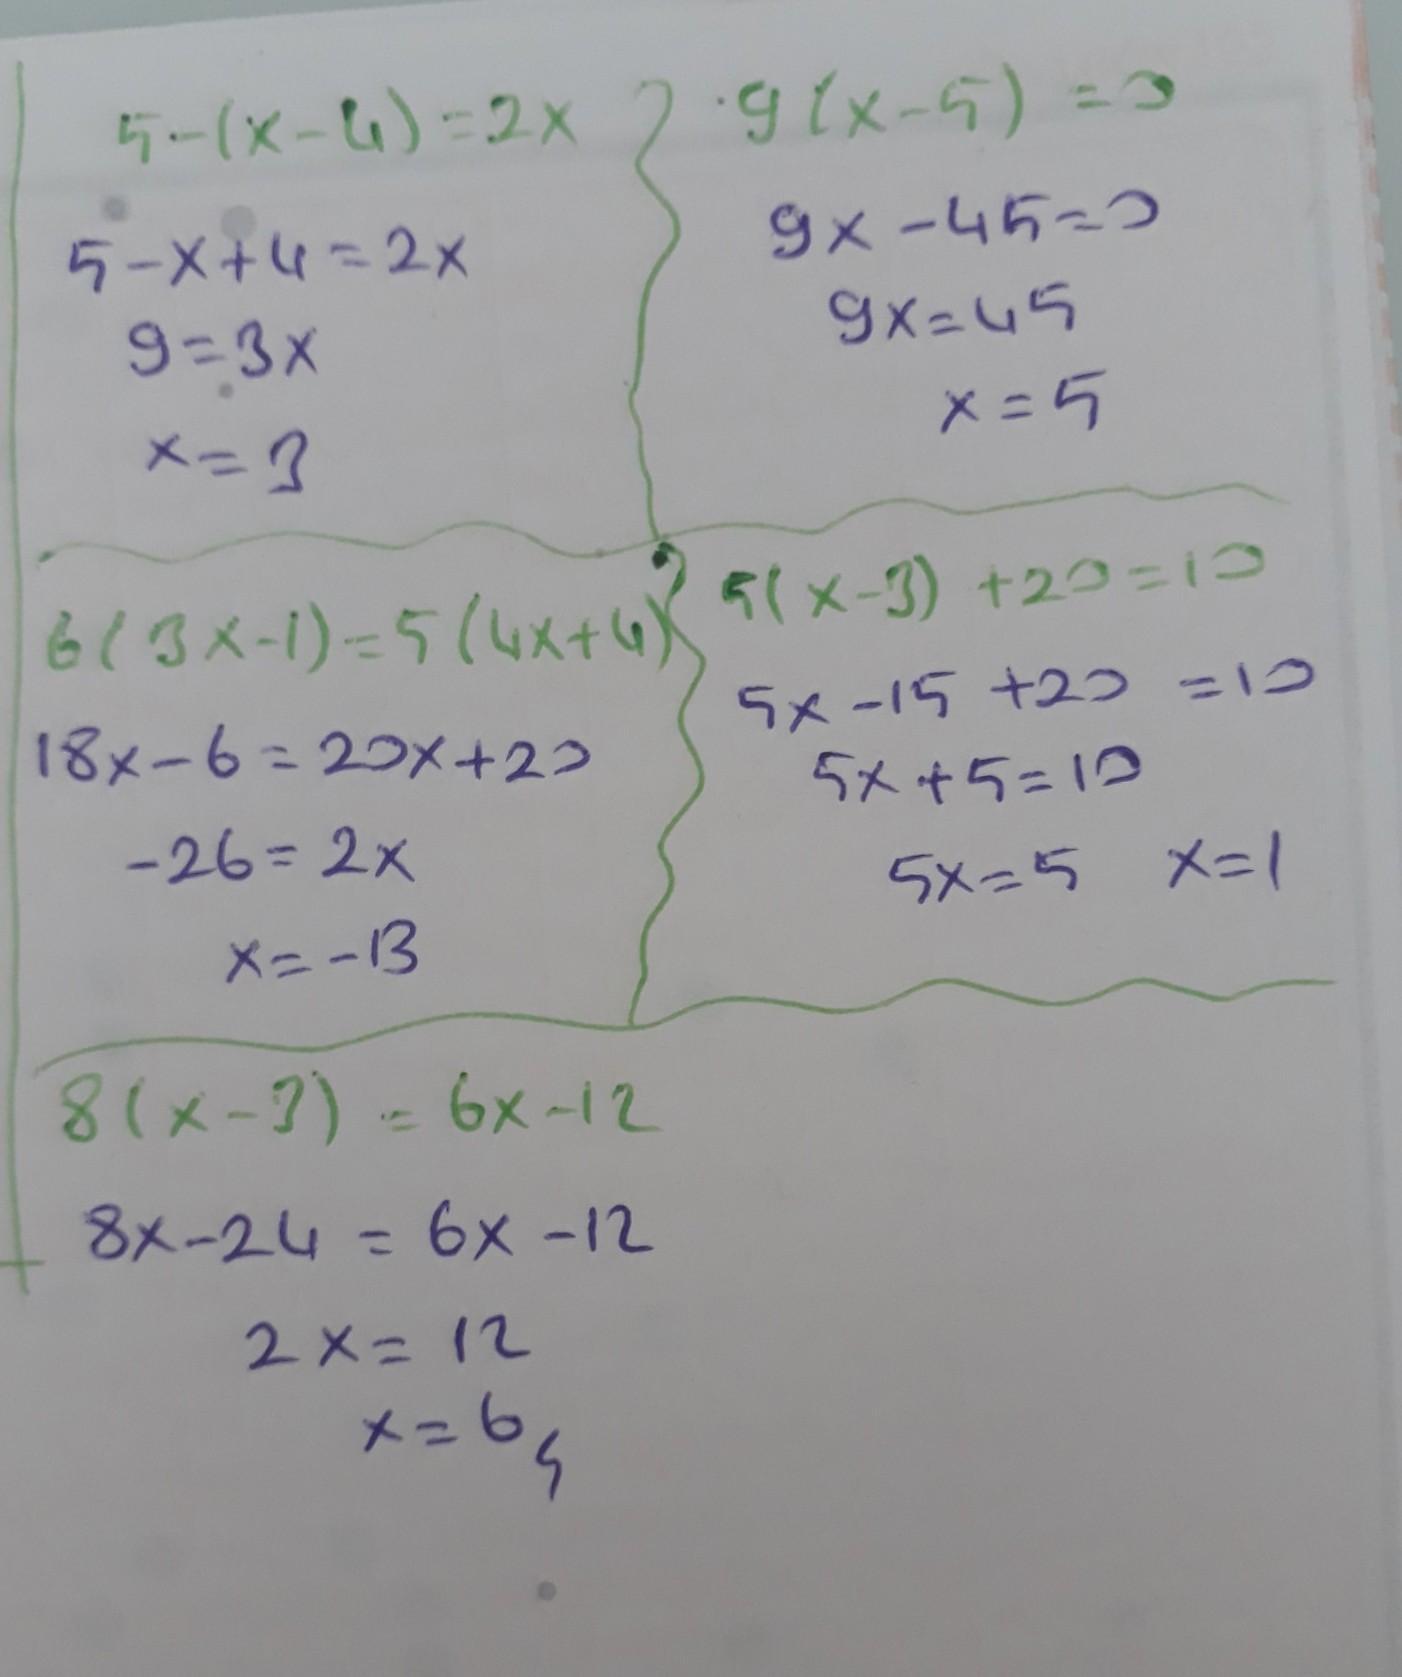 5-(x-4)=2x
5-x+4=2x
9=3x
x=3
9(x-5)=0
9x-45=0
9x=45
x=5
6(3x-1)=5(4x+4)
18x-6=20x+20
-26=2x
x=-13
5(x-3)+20=10
5x-15+20=10
5x+5=10
5x=5 x=1
8(x-3)=6x-12
8x-24=6x-12
2x=12
x=6